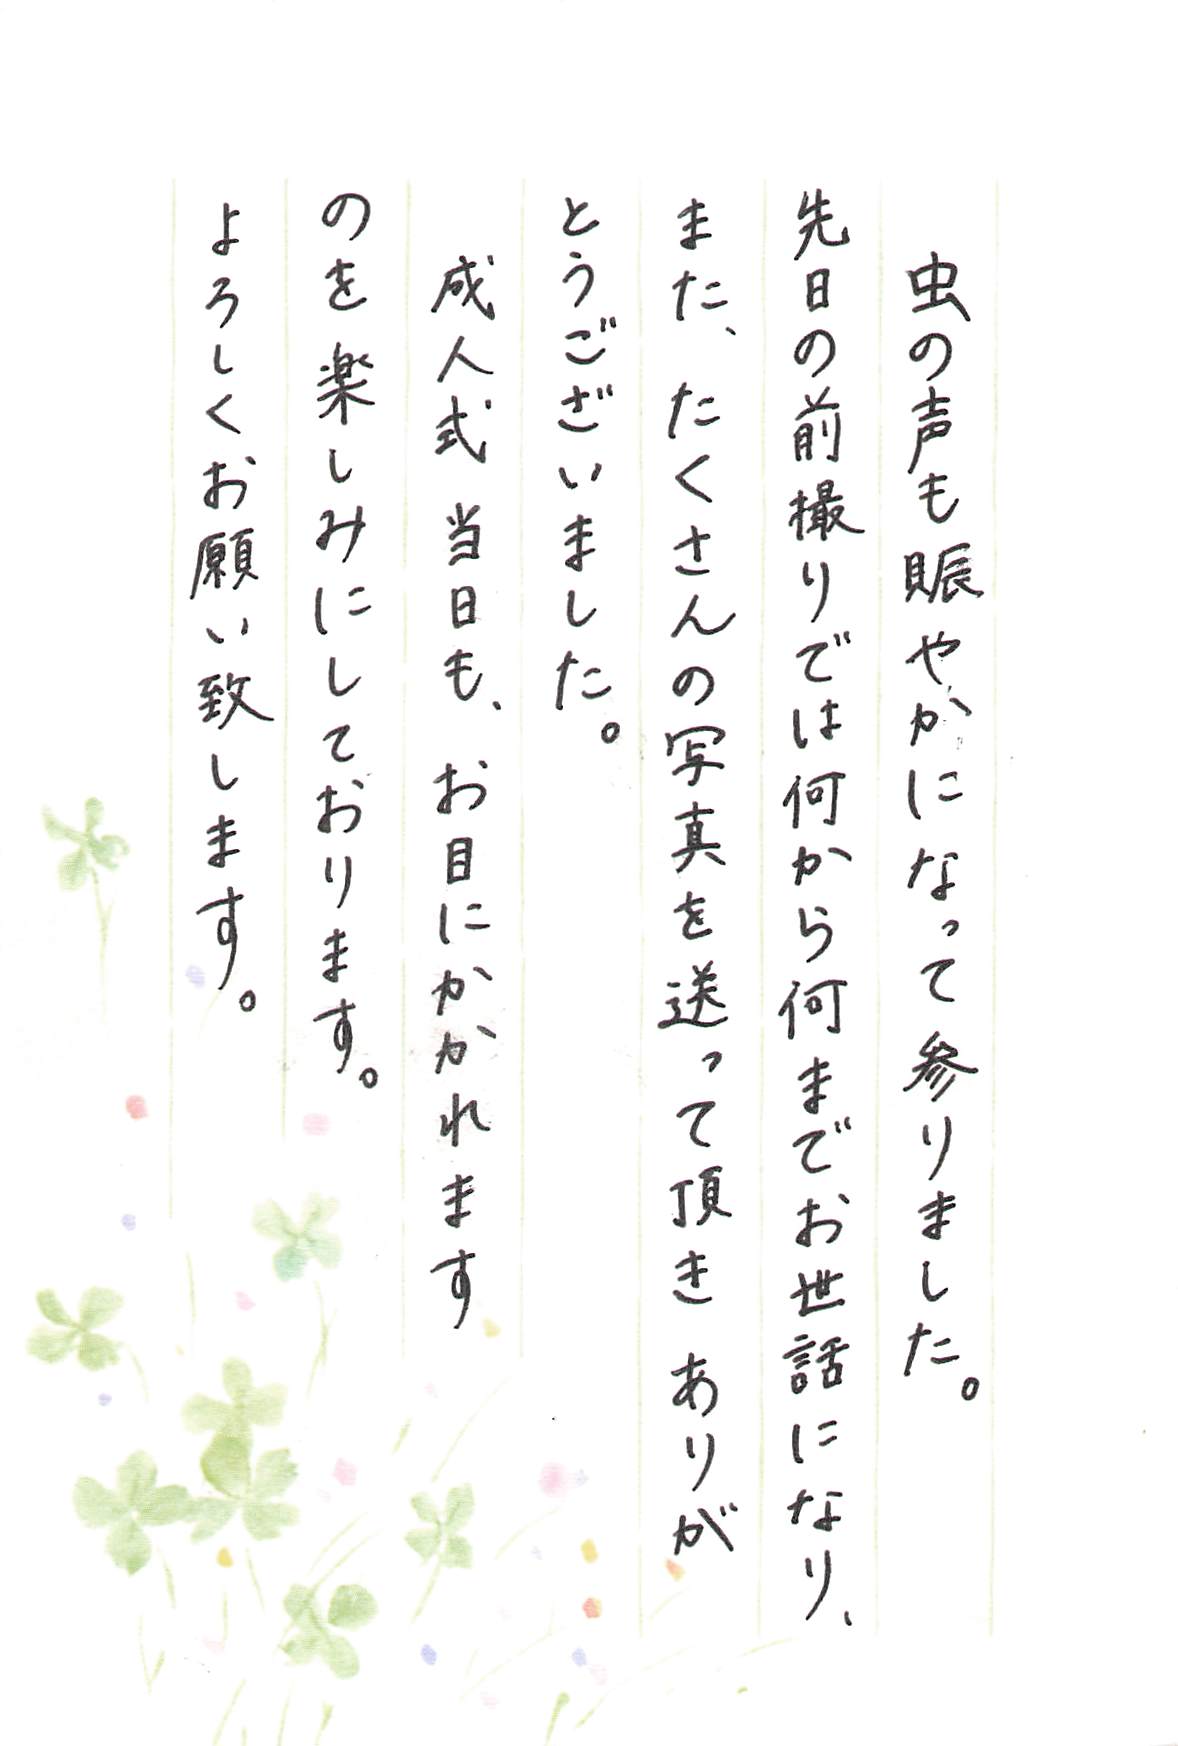 虫の声も賑やかになって参りました。
先日の前撮りでは何から何までお世話になり、
また、たくさんの写真を送って頂きありが
とうございました。
成人式当日も、お目にかかれます
のを楽しみにしております。
よろしくお願い致します。